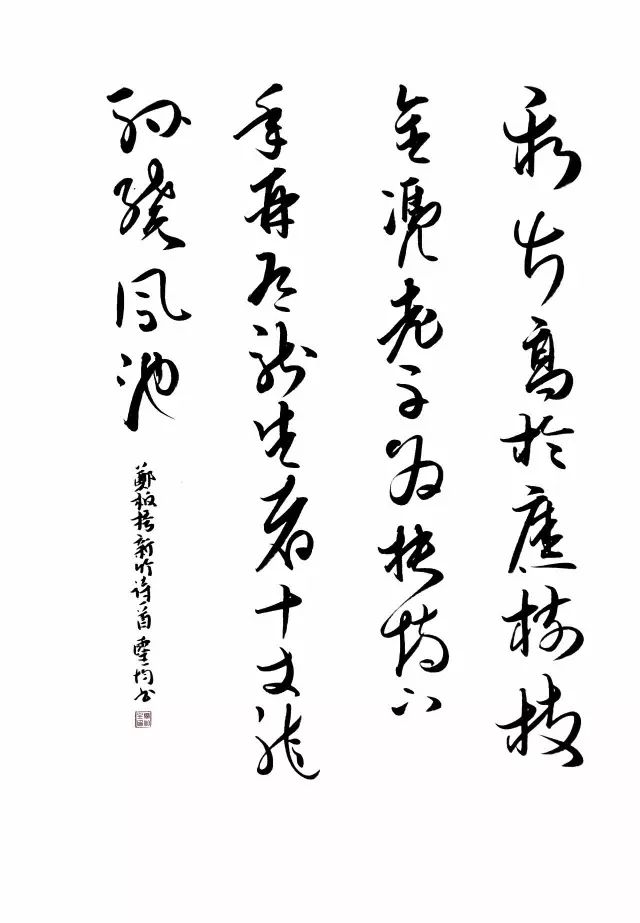 新竹高於舊樹枝
全憑老干為扶持下
年再有新生者十丈龍
孫繞鳳池
鄭板橋新竹詩一首 靈均書